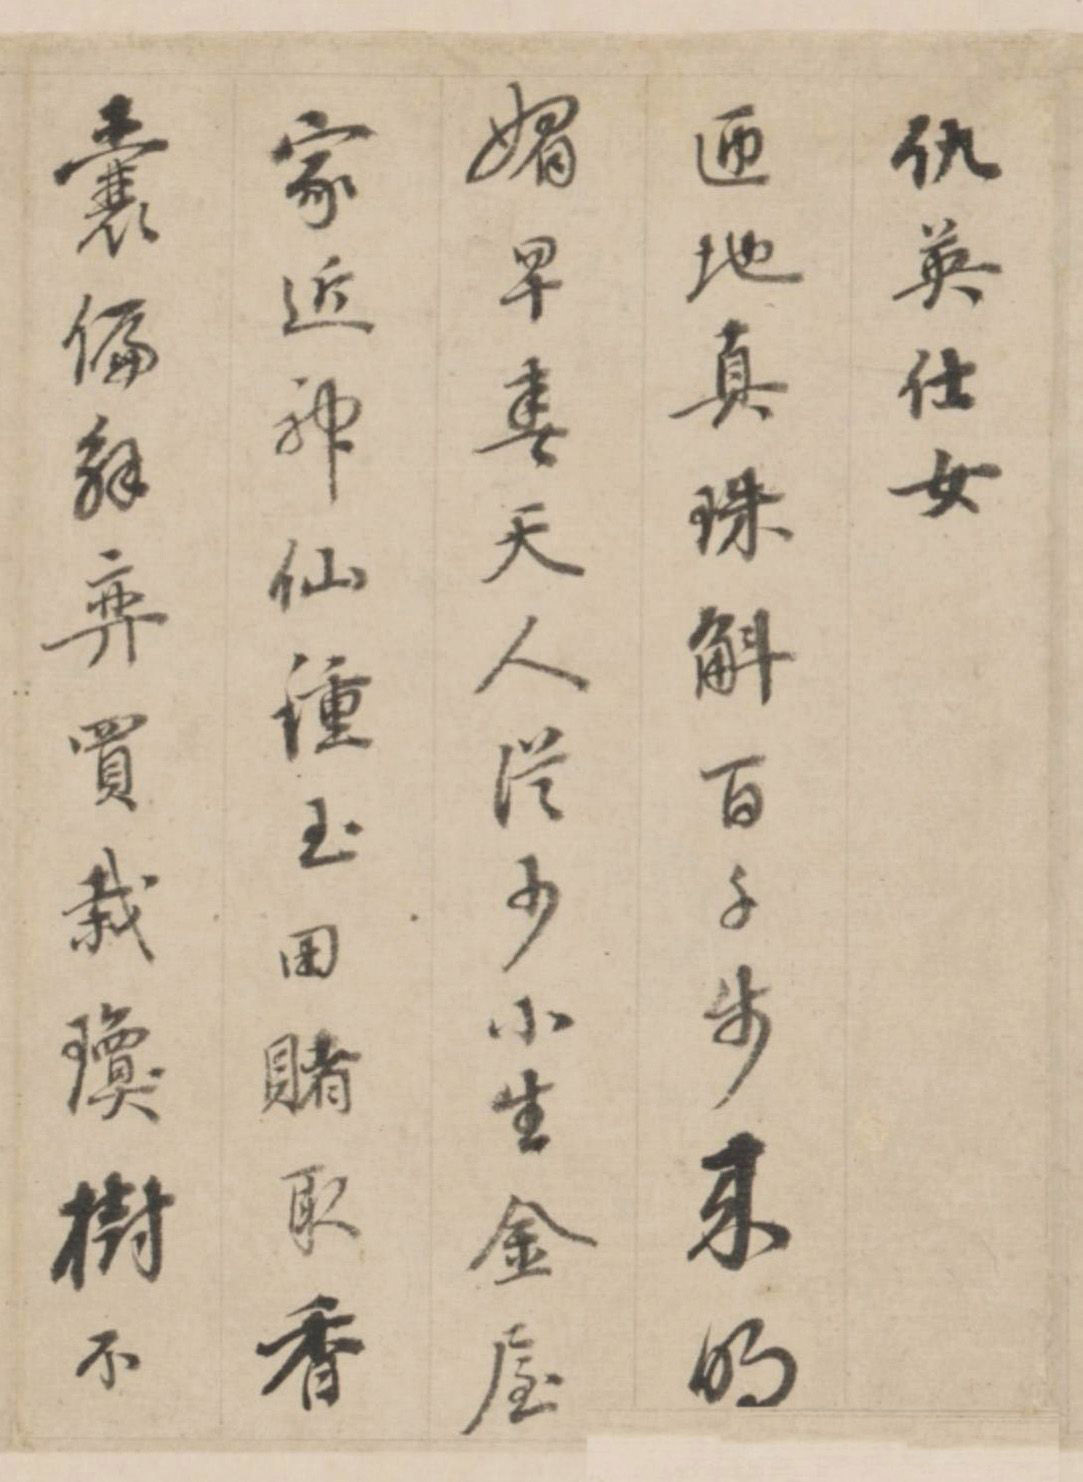 仇英仕女
匝地真珠斛百千步来明
媚早春天人從少小生金屋
家近神仙種玉田賭取香
囊偏解弈買栽瓊樹不